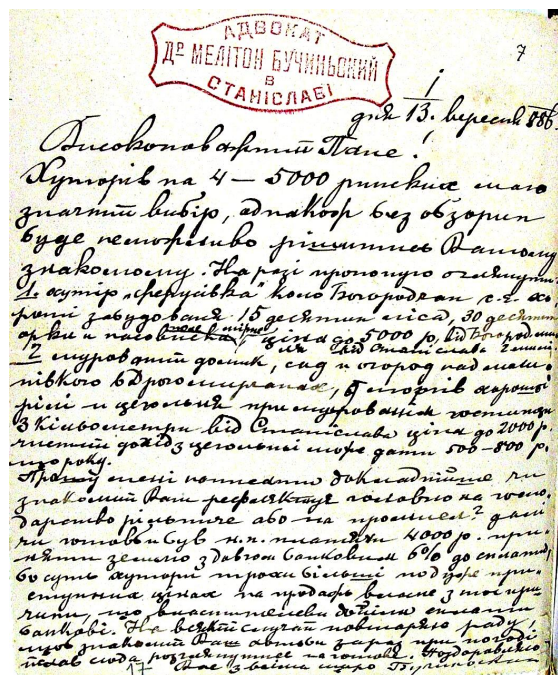 АДВОКАТ
Др МЕЛІТОН БУЧИНЬСКИЙ
В
СТАНІСЛАВІ
7
дня 13. вересня 886
Високоповажний Пане!
Хуторів на 4 — 5000 ринских маю
значний вибір, однакож без обзорин
буде неможливо рішитись Вашому
знакомому. На разі пропоную оглянути
1. хутір „ коло Богородчан с. є. хо
роші забудованя 15 десятин ліса, 30 десятин
орки и пасовиска, ціна до 5000 р, від Богородчан
від Станіслава
2 мурований домик, сад и огород над млы
нівкою в Дрогомирчанах, 6 моргів хорошої
рілі и цегольня при мурованім гостинци
3 кільометри від Станіслава ціна до 2000 р.
чистий дохід з цегольні може дати 500–800 р.
що року.
Прошу мені написати докладнійше чи
знакомий Ваш рефлектує головно на госпо
дарство рільниче або на промисел? дальше
чи готов би був н. п. платячи 4000 р. при
няти землю з довгом банковим 6% до сплати,
бо суть хутори трохи більші по дуже при
ступних цінах на продаж власне з тої при
чини, що властителеви сплати
банкови. На всякий случай повторяю раду,
щоб знакомий Ваш зараз при погоді
сюда
17 Вас з всіма щиро Бучиньский